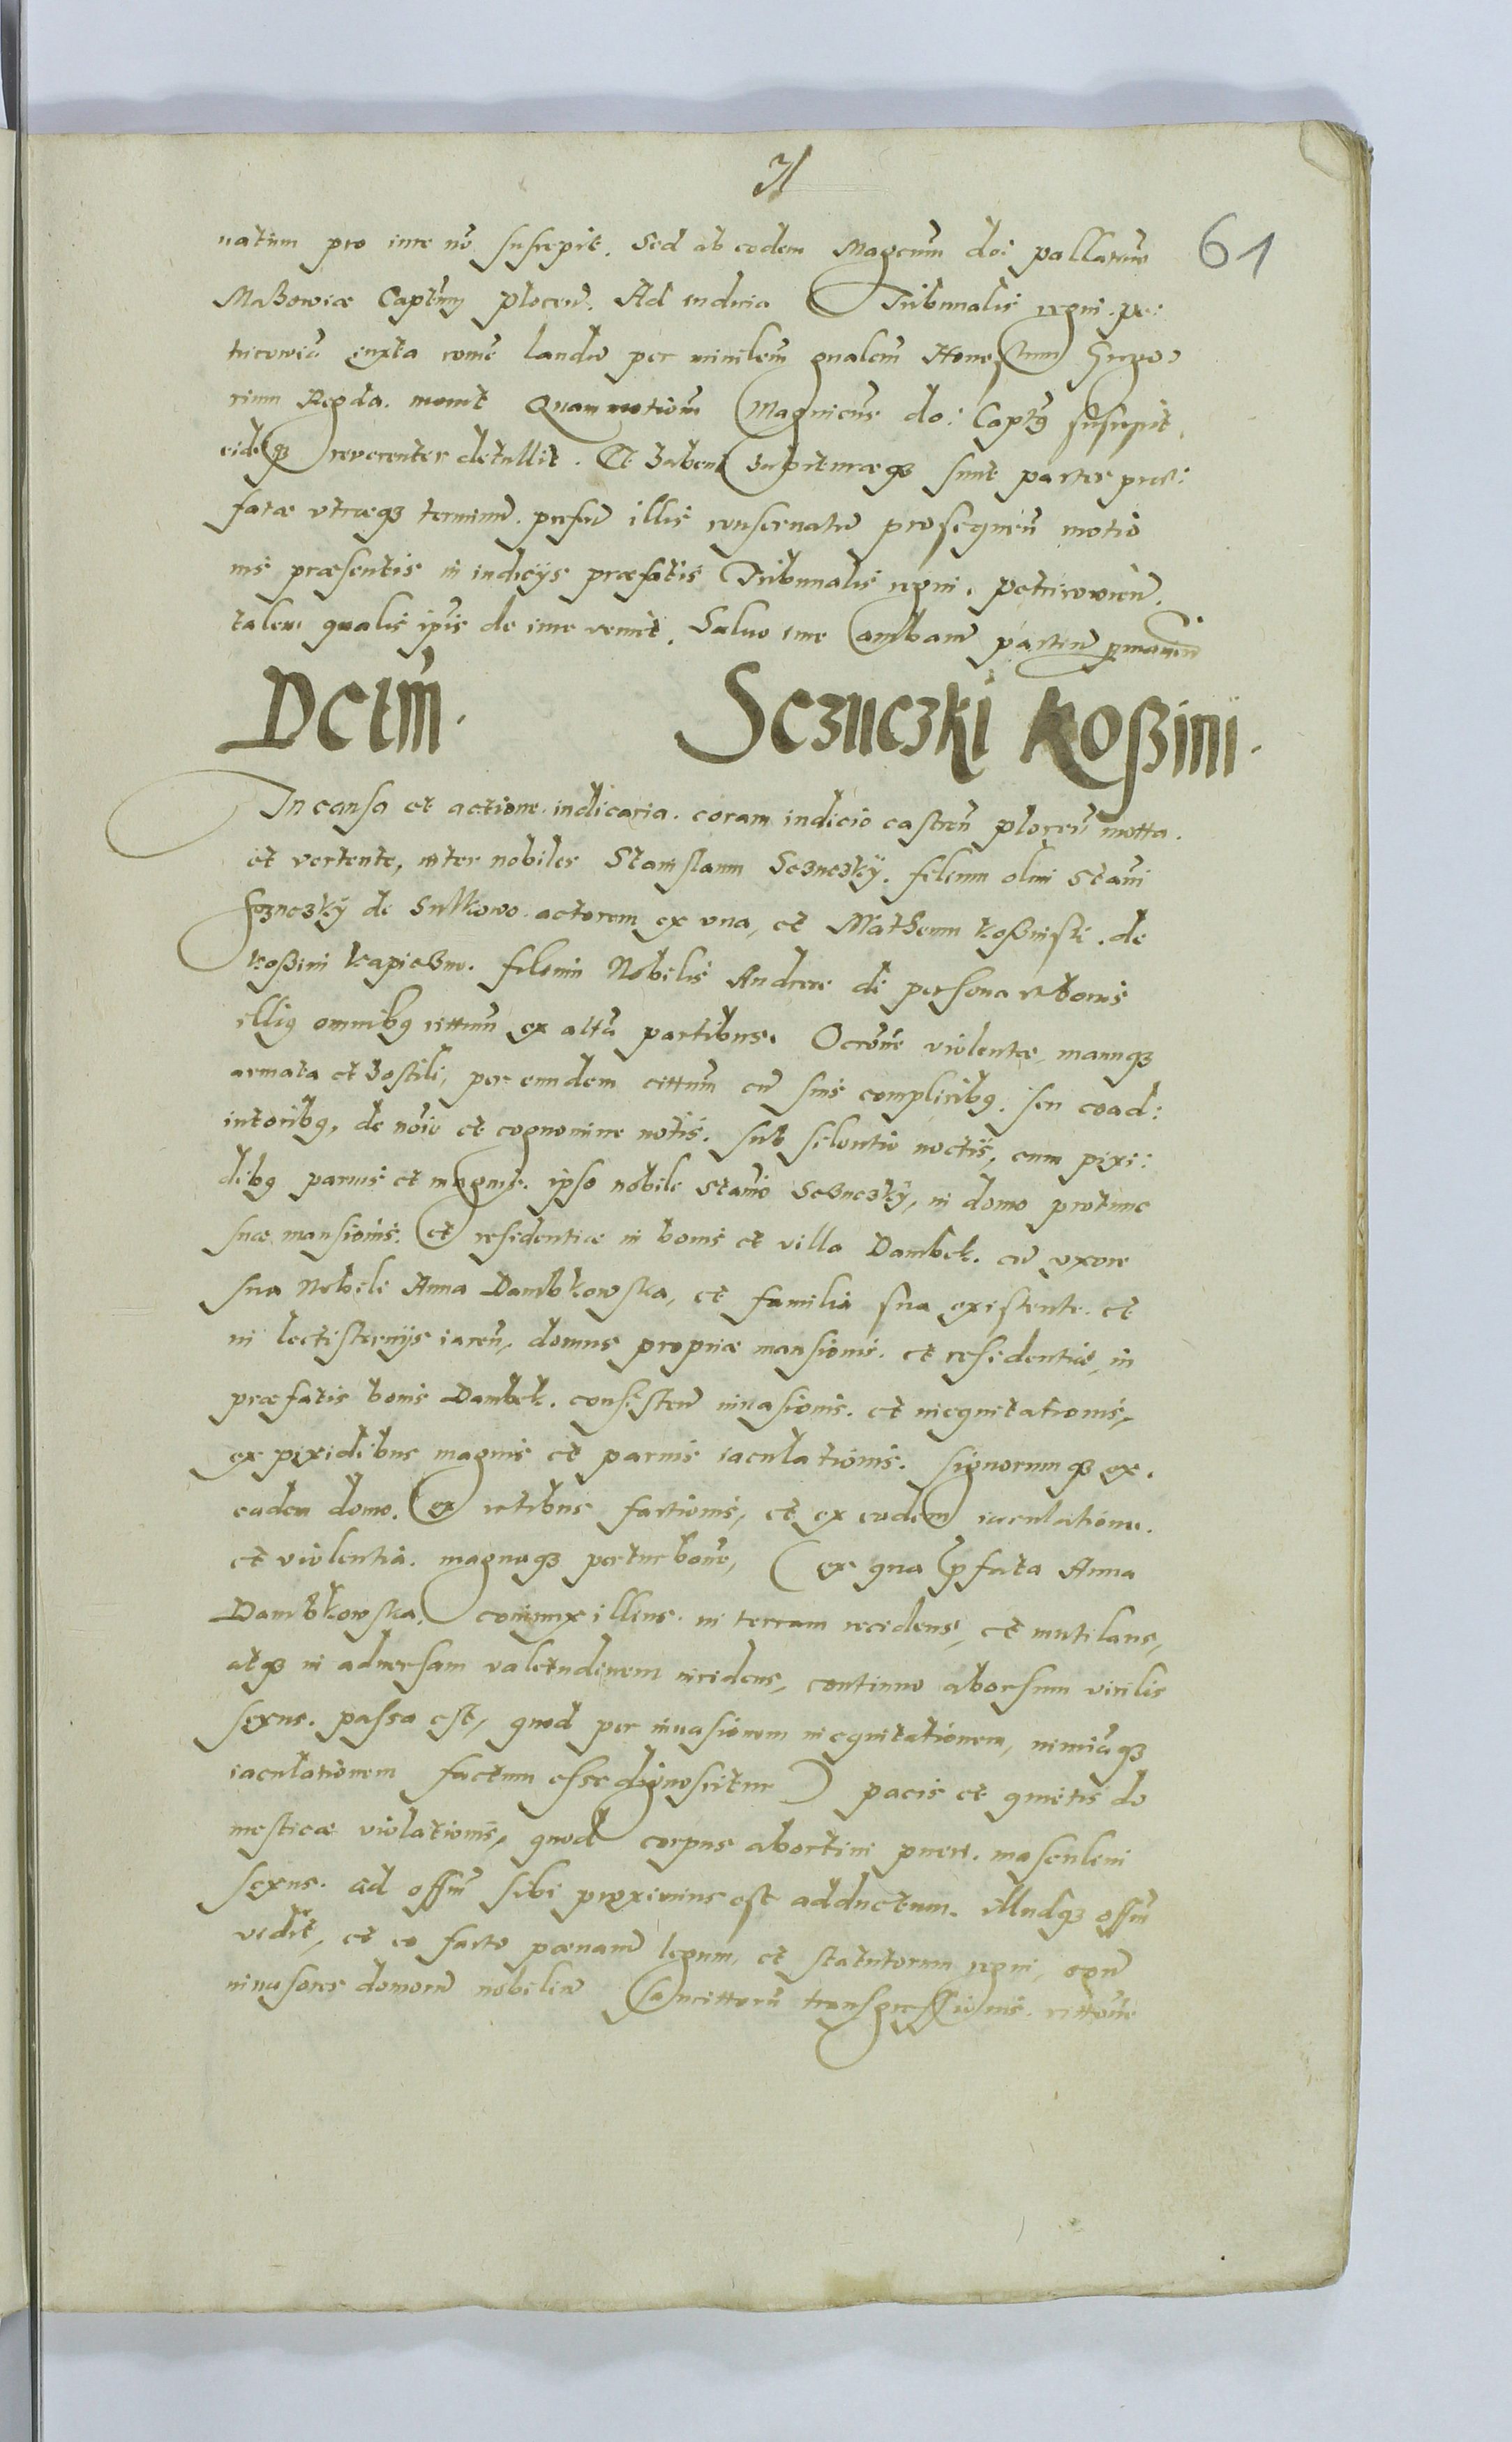 71
61
natum pro iure nō suscepit. Sed ab eodem Magcum do: pallatinū
Maßowiæ Captum plocen̄. Ad iudicia Tribunalis regni. pe:
tricowien̄ iuxta laudū per ministm̄
Regda. mouit Quam motionē Magnicus do: Capts suscepit,
eidēq3 reuerenter detullit. Et habent habituræq3 sunt partes præ:
fatæ vtræq3 terminū. præfixū illis conseruatū prosequen̄ motio
nis præsentis in iudicijs præfatis Tribunalis regni. petricowien̄.
talem qualis ip̄is de iure venit. Saluo iure ambarū partiū p̱manen̄
Dctm̄. Seznczki Koßini.
In causa et actione iudicaria. coram iudicio castren̄ plocen̄ motta.
et vertente, inter nobiles Stanislaum Sczneskÿ. filium olim Stani
Seznczkÿ de Sulkowo actorem ex vna, et Matheum Koßinski. de
Koßini Kapicßne. filium Nobilis Andreæ de persona et bonis
illiq omnibq cittum ex altā partibus. Occōne violentæ, manuq3
armata et hostili, per eundem cittum cū suis complicibq. seu coad:
iutoribq, de nōie et cognomine notis. sub silentio noctis, cum pixi:
dibq paruis et magnis. ipso nobile Stanio Sczneskÿ, in domo protunc
suæ mansionis. et residentiæ in bonis et villa Dambek. cū vxore
sua Nobile Anna Dambkowska, et familia sua existente. et
in lectisternijs iacen̄, domus propriæ mansionis. et residentiæ, in
præfatis bonis Dambek. consisten̄ inuasionis. et inequitationis,
ex pixidibus magnis et paruis iaculationis. signorumq3 ex.
eadem domo. ex ictibus factionis, et ex eadem iaculatione.
et violentia. magnaq3 perturbaōne, (ex qua p̱fata Anna
Dambkowska. coniunx illius. in terram recidens, et mutilans,
atq3 in aduersam valetudinem incidens, continuo aborsum virilis
sexus. passa est, quod per inuasionem inequitationem, nimiāq3
iaculationem factum esse dignoscitur) pacis et quietis do
mesticæ violationis, quod corpus abortiui pueri. masculini
sexus. ad offm̄ sibi proximius est adductum. illudq3 offm̄
vidit, et eo facto pœnarū legum, et statutorum regni,
inuasores domorū nobiliū transgressionis. cittōne